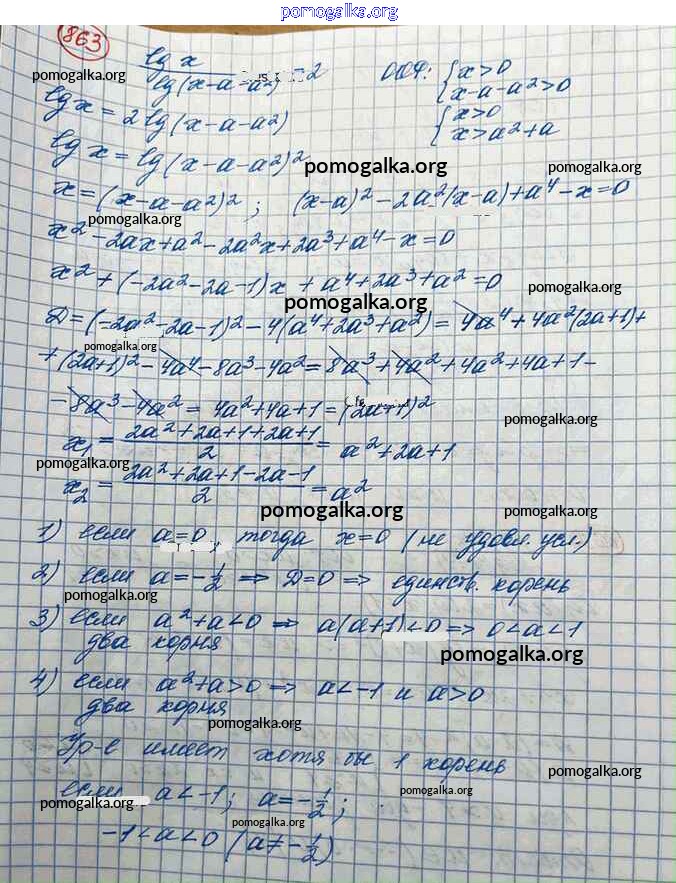 pomogalka.org
863
lg x / lg(x-a-a²) = 2 ОДЗ: { x>0
pomogalka.org { x-a-a²>0
lg x = 2 lg(x-a-a²) { x>0
pomogalka.org { x>a²+a
lg x = lg(x-a-a²)² pomogalka.org pomogalka.org
x=(x-a-a²)²; (x-a)²-2a²(x-a)+a⁴-x=0
pomogalka.org
x²-2ax+a²-2a²x+2a³+a⁴-x=0
x²+(-2a²-2a-1)x+a⁴+2a³+a²=0
pomogalka.org pomogalka.org
Д=(-2a²-2a-1)²-4(a⁴+2a³+a²)=4a⁴+4a²(2a+1)+
pomogalka.org
+(2a+1)²-4a⁴-8a³-4a²=8a³+4a²+4a²+4a+1-
-8a³-4a²=4a²+4a+1=(2a+1)²
pomogalka.org
x₁=(2a²+2a+1+2a+1)/2=a²+2a+1
pomogalka.org pomogalka.org
x₂=(2a²+2a+1-2a-1)/2=a²
pomogalka.org pomogalka.org
1) если a=0, тогда x=0 (не удовл. усл.)
2) если a=-1/2 ⇒ Д=0 ⇒ единств. корень
pomogalka.org
3) если a²+a<0 ⇒ a(a+1)<0 ⇒ 0<a<1
два корня
pomogalka.org
4) если a²+a>0 ⇒ a<-1 и a>0
два корня
pomogalka.org
Ур-е имеет хотя бы 1 корень
pomogalka.org
если a<-1; a=-1/2;
pomogalka.org pomogalka.org
pomogalka.org
-1<a<0 (a≠-1/2)